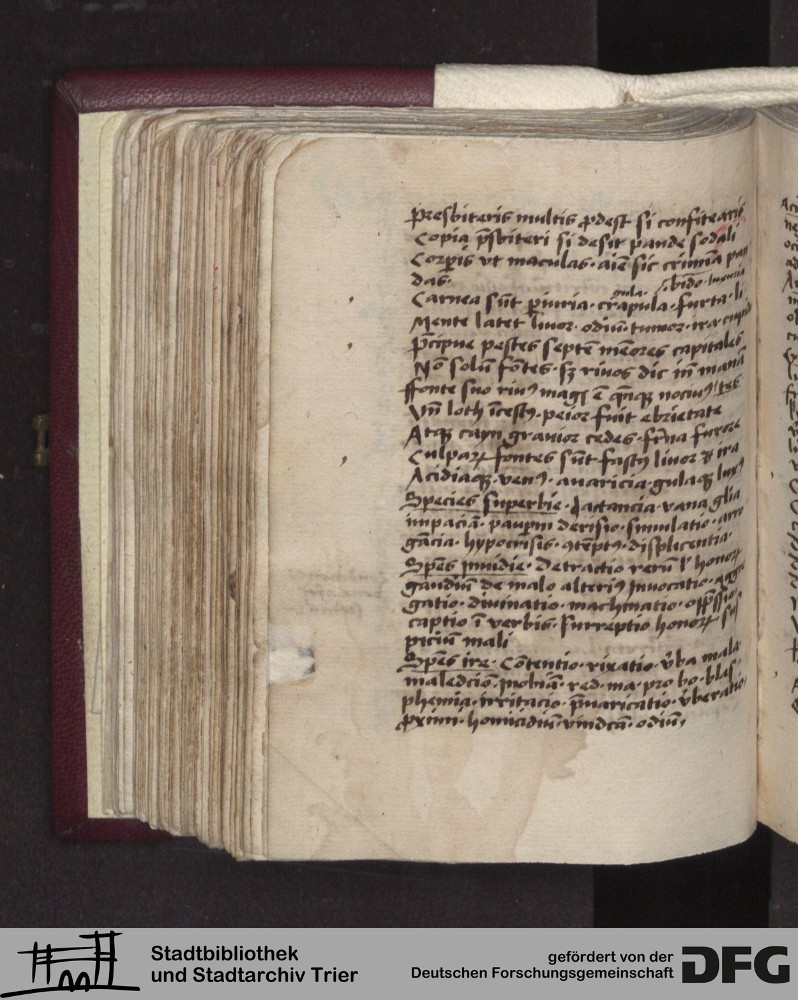 Presbiteris multis ꝓdest si confitearis
Copia p̄sbiteri si desit pande sodali
Corꝑis vt maculas · aīe sic crimīa pan
das ·
gula · libido · luxuria
Carnea sūt ꝑiuria · crapula · furta · li
Mente latet liuor · odiū · tumor · ira
p̄cipue pestes septē capitales
Nō solū fōtes · sꝫ riuos dic in
ffonte suo riuꝰ magꝭ ē nociuꝰ
Vn̄ loth īcestꝰ · peior fuit ebrietate
Atqꝫ cayn grauior cedes · furore
Culpaꝝ fontes sūt fastꝰ liuor & ira
Acidiaqꝫ · venꝰ · auaricia · gulaqꝫ
Species superbie · Jactancia · vana glīa
impaciā · pauꝑm derisio · simulatio · arro
gācia · hypocrisis · ꝯtēptꝰ · displicentia
Sp̄es inuidie · Detractio rerū l' honoꝝ
gaudiū de malo alteriꝰ Inuocatio · aggre
gatio · diuinatio · machinatio · opp̄ssio
captio ī verbis · surreptio honoꝝ sus
piciūm mali
Sp̄es ire · Cōtentio · rixatio · v̄ba mala
malediciō · red · ma · pro bo · blas
phemia · irritacio · p̄uaricatio · v̄beratio
ꝓximi · homicidiū · vindcā · odiū
Stadtbibliothek
und Stadtarchiv Trier
gefördert von der
Deutschen Forschungsgemeinschaft
DFG